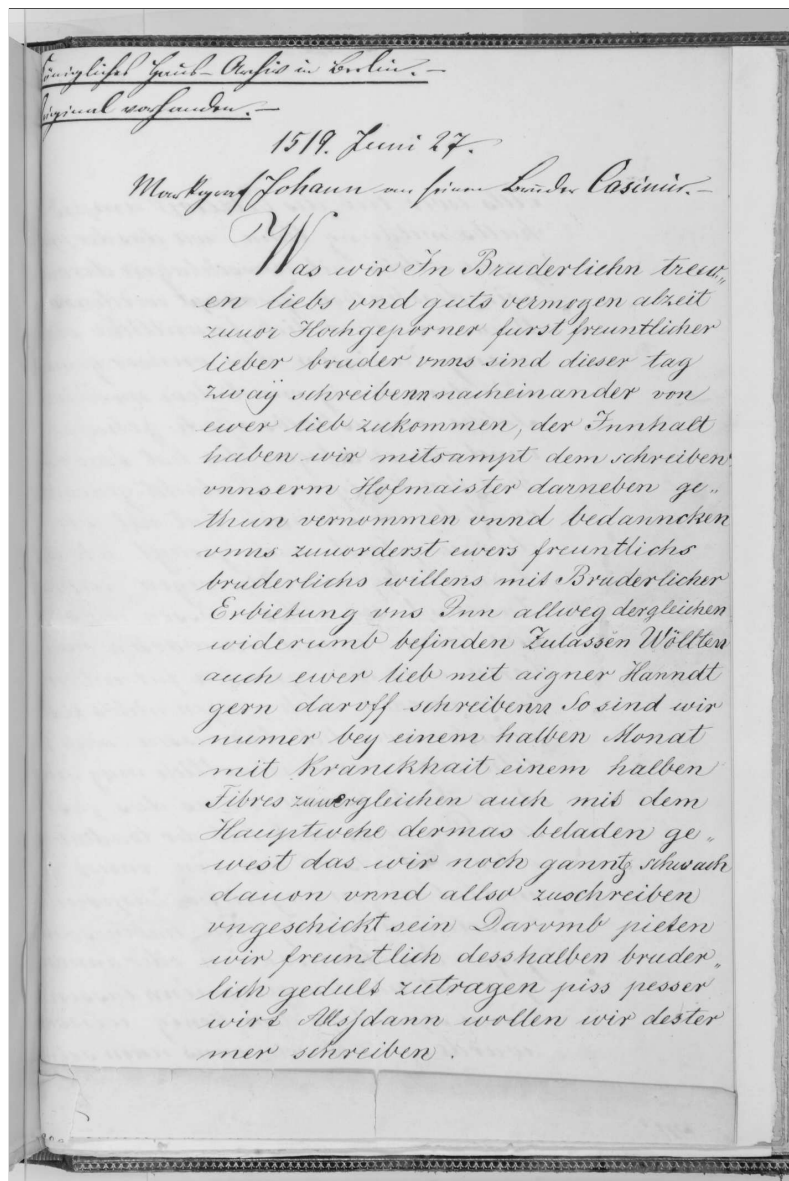 Königliches Haus-Archiv in Berlin.-
Original vorhanden.-
1519. Juni 27.
Markgraf Johann an seinen Bruder Casimir.-
Was wir In Bruderlichn treuw„
en liebs vnd guts vermogen alzeit
zuuor Hochgeporner furst freuntlicher
lieber bruder vnns sind dieser tag
zwaÿ schreibenn nacheinander von
ewer lieb zukommen, der Innhalt
haben wir mitsampt dem schreiben
vnnserm Hofmaister darneben ge„
thun vernommen vnnd bedanncken
vnns zuuorderst ewers freuntlichs
bruderlichs willens mit Bruderlicher
Erbietung vns Inn allweg dergleichen
widerumb befinden Zulassen Wöllten
auch ewer lieb mit aigner Hanndt
gern daruff schreibenn So sind wir
numer bey einem halben Monat
mit Kranckhait einem halben
Fibres zuuergleichen auch mit dem
Hauptwehe dermas beladen ge„
west das wir noch ganntz schwach
dauon vnnd allso zuschreiben
vngeschickt sein Darumb pieten
wir freuntlich desshalben bruder„
lich gedult zutragen piss pesser
wirt Allssdann wollen wir dester
mer schreiben.